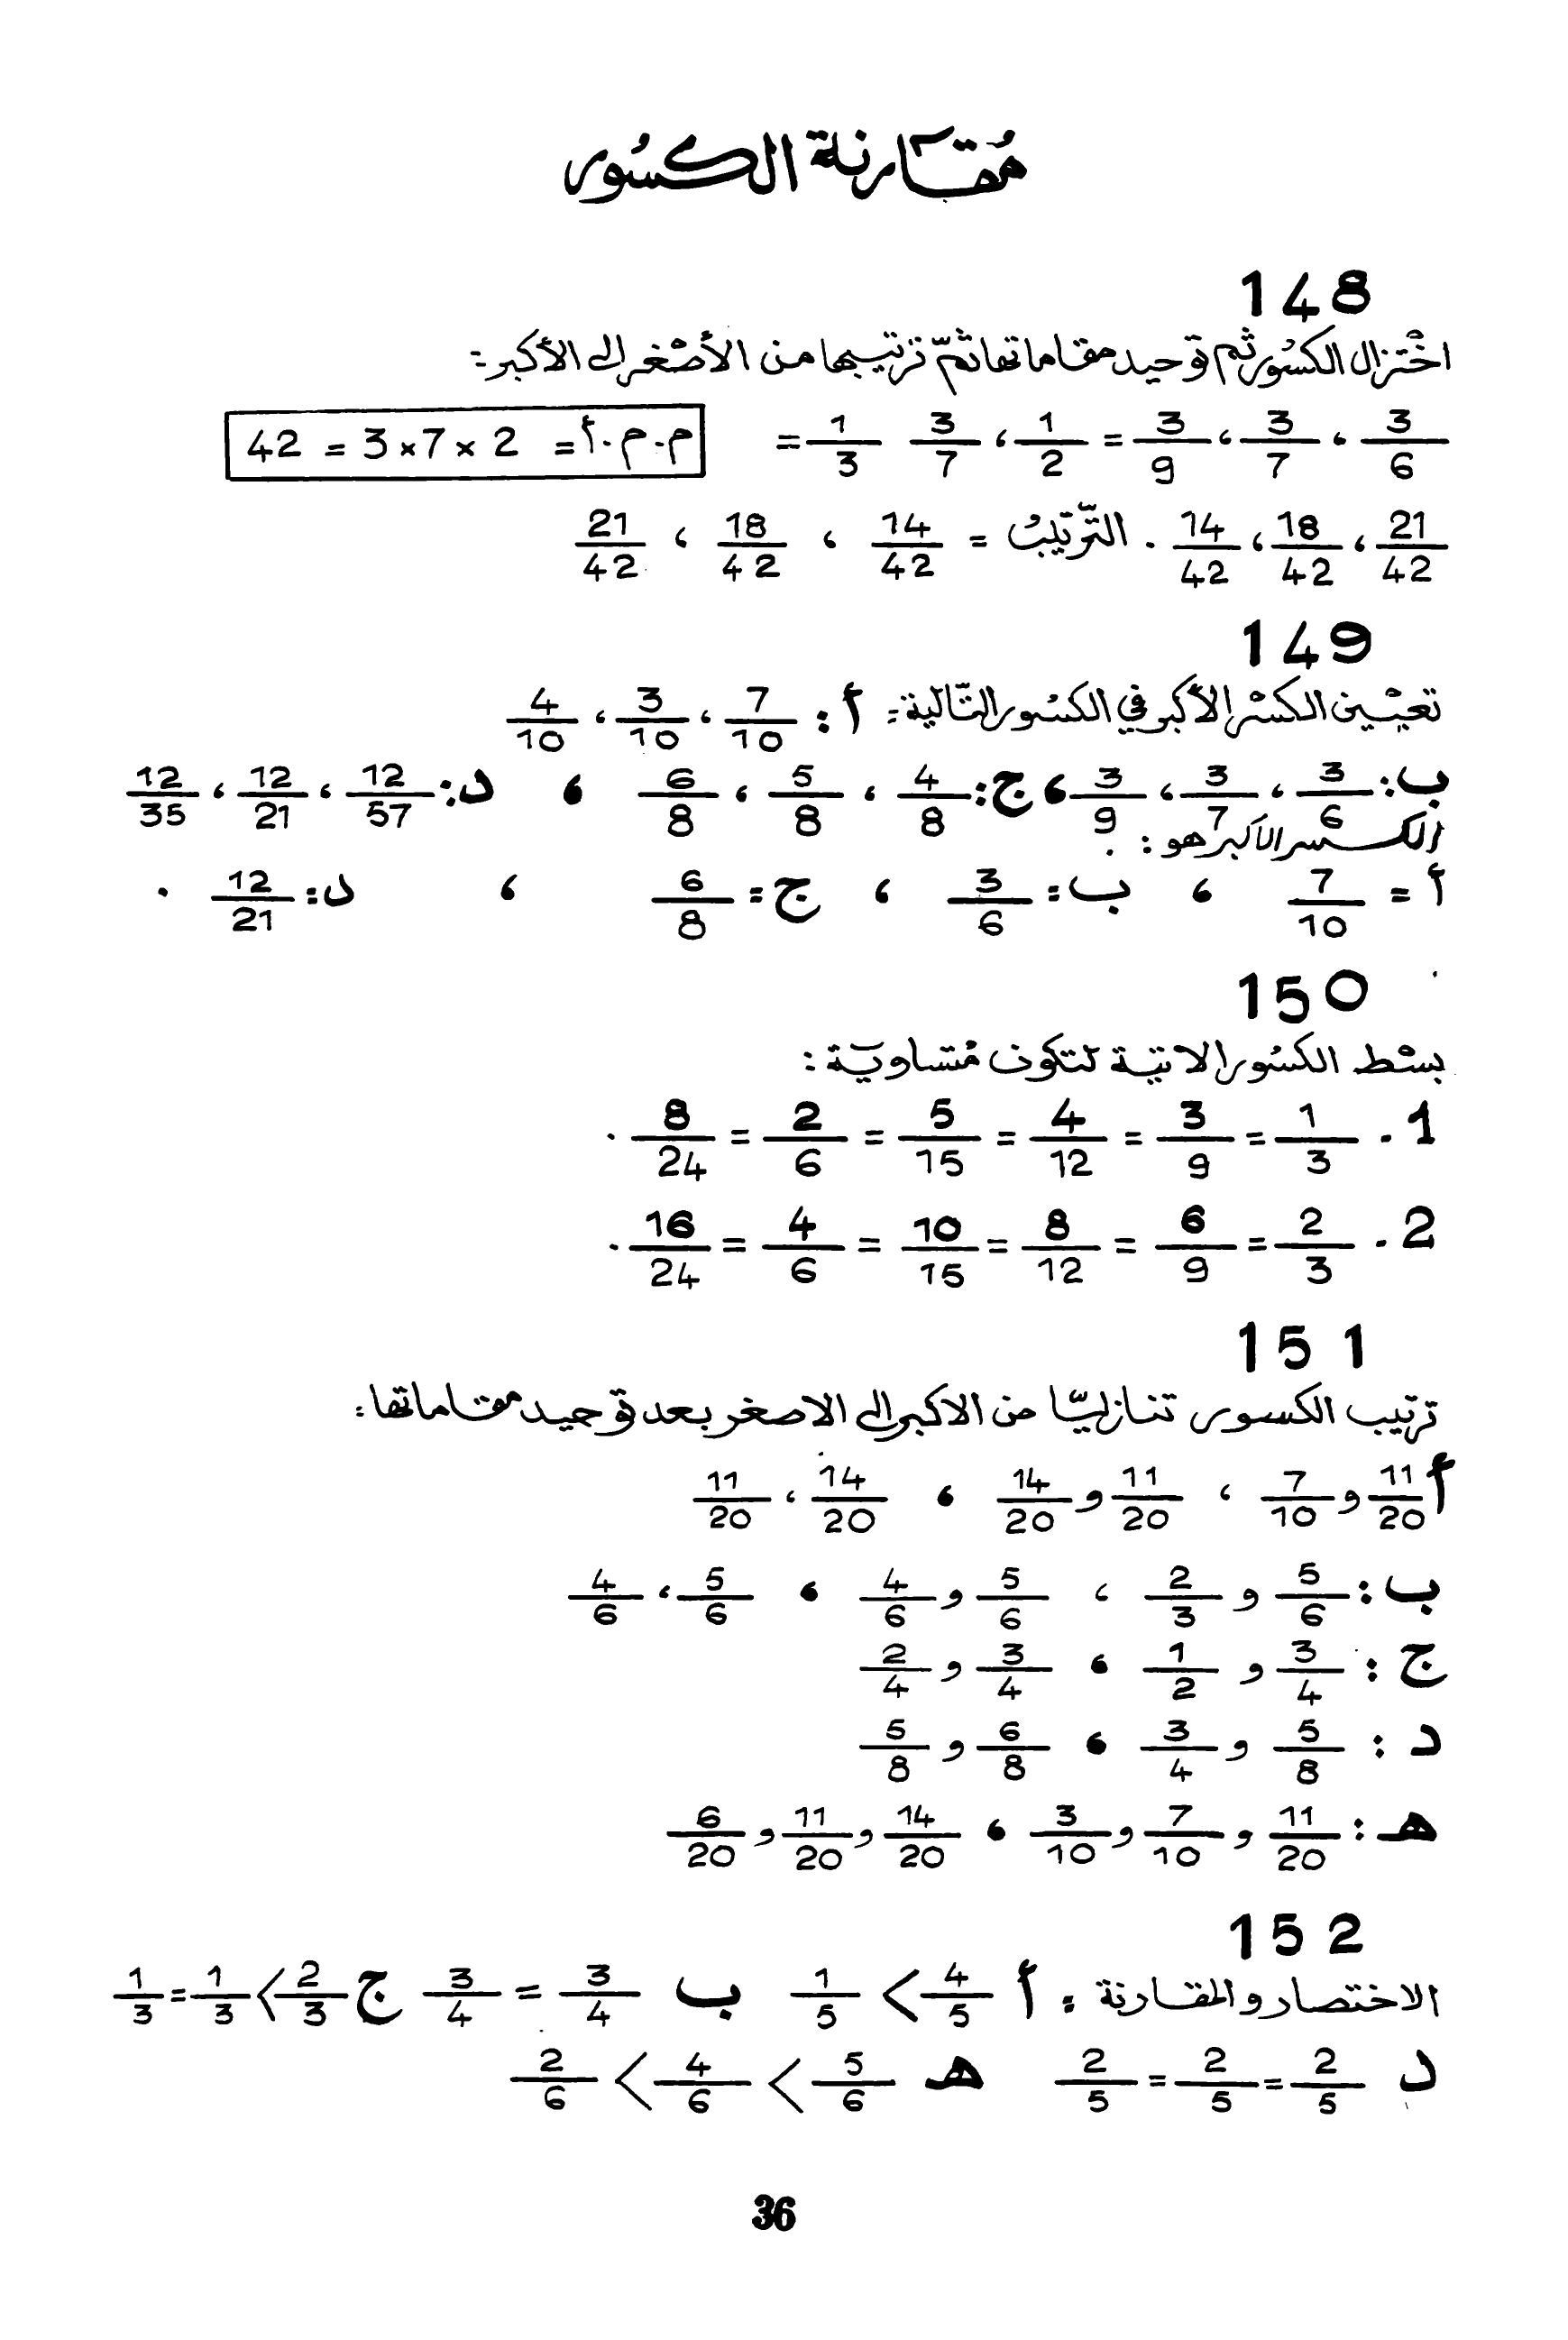 مُقَارنة الكسُور
148
اخْتزال الكسُور ثم توحيد مقاماتها ثمّ ترتيبها من الأصْغر إلى الأكبر:
3/6 ، 3/7 ، 3/9 = 1/2 ، 3/7 1/3 = م.م.أ = 2 × 7 × 3 = 42
21/42 ، 18/42 ، 14/42 . التّرتيبُ = 14/42 ، 18/42 ، 21/42
149
تعيْين الكسْر الأكبر في الكسُور التّالية: أ : 7/10 ، 3/10 ، 4/10
ب: 3/6 ، 3/7 ، 3/9 ، ج: 4/8 ، 5/8 ، 6/8 ، د: 12/57 ، 12/21 ، 12/35
الكسر الأكبر هو :
أ = 7/10 ، ب: 3/6 ، ج: 6/8 ، د: 12/21 .
150
بسْط الكسُور الاتية لتكون مُتساويَة :
1 . 1/3 = 3/9 = 4/12 = 5/15 = 2/6 = 8/24 .
2 . 2/3 = 6/9 = 8/12 = 10/15 = 4/6 = 16/24 .
151
ترتيب الكسور تنازليّا من الاكبر إلى الاصغر بعد توحيد مقاماتها :
أ 11/20 و 7/10 ، 11/20 و 14/20 ، 14/20 ، 11/20
ب : 5/6 و 2/3 ، 5/6 و 4/6 ، 5/6 ، 4/6
ج : 3/4 و 1/2 ، 3/4 و 2/4
د : 5/8 و 3/4 ، 6/8 و 5/8
هـ : 11/20 و 7/10 و 3/10 ، 14/20 و 11/20 و 6/20
152
الاختصار والمقارنة : أ 4/5 > 1/5 ب 3/4 = 3/4 ج 2/3 > 1/3 = 1/3
د 2/5 = 2/5 = 2/5 هـ 5/6 > 4/6 > 2/6
36